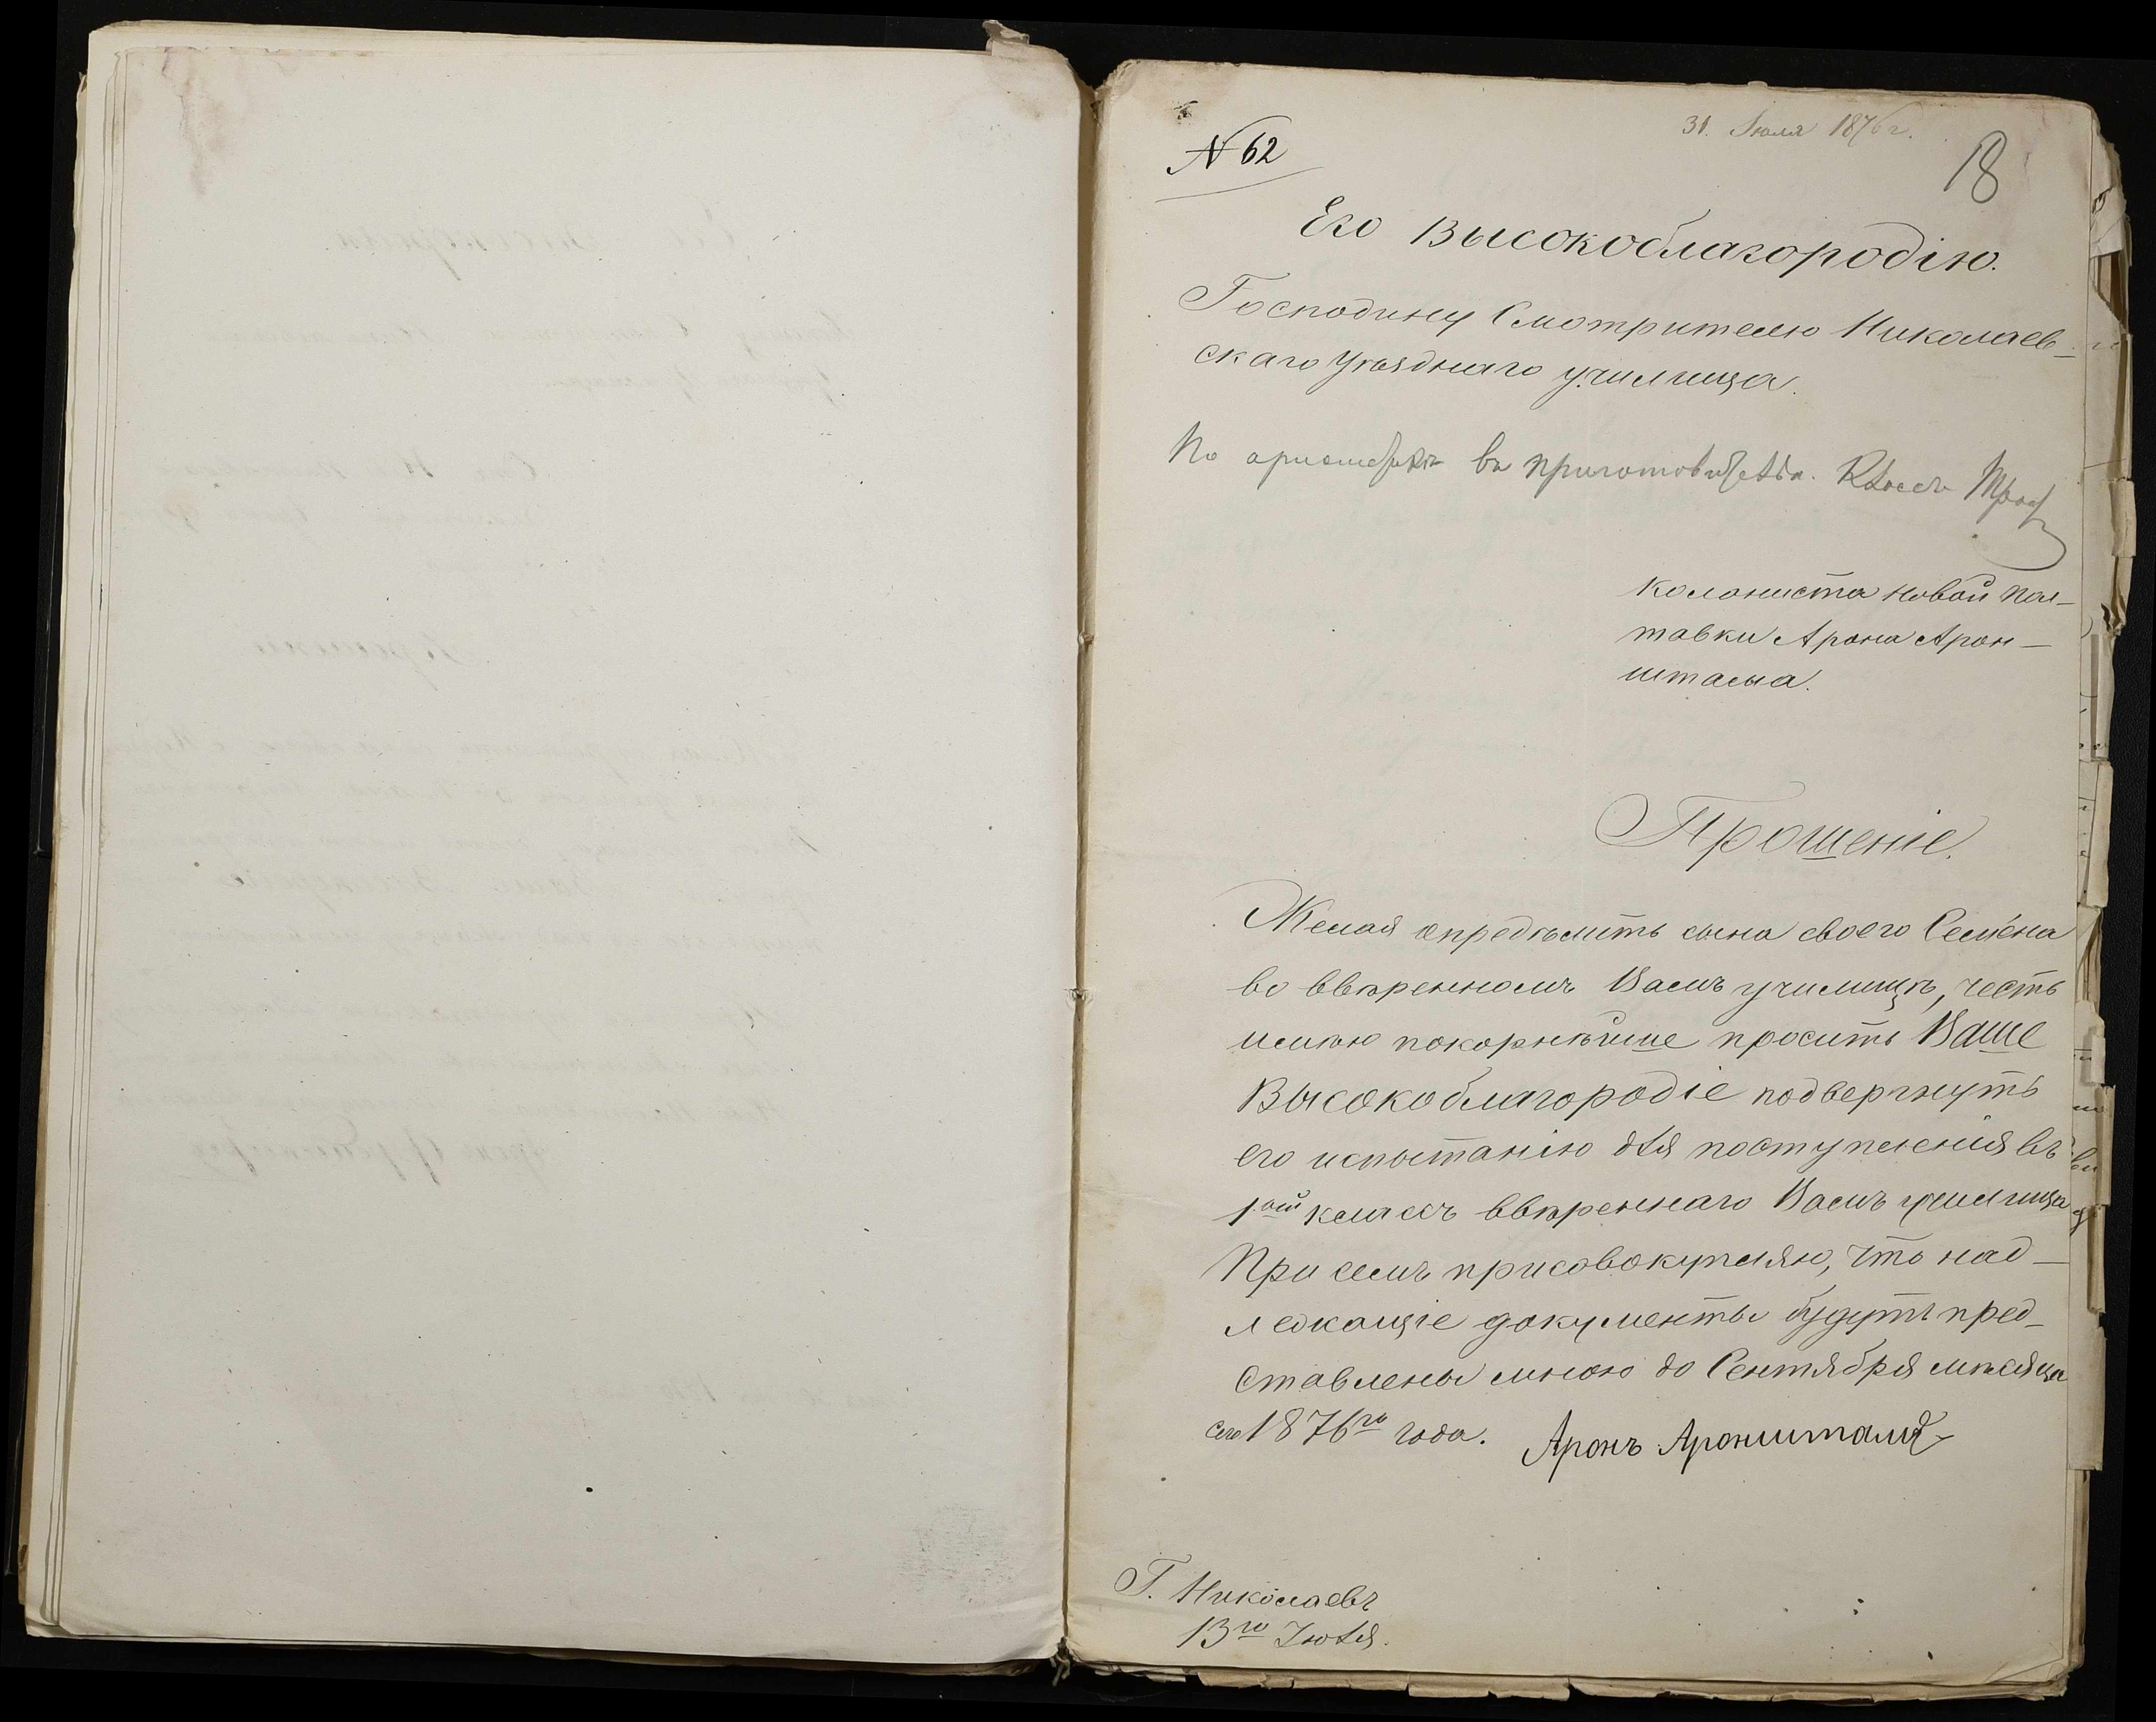 31. Июля 1876 г.
N 62
18
Его Высокоблагородію.
Господину Смотрителю Николаев-
скаго Уѣзднаго училища.
По ариѳметикѣ въ приготовительн. классъ
колониста новой Пол-
тавки Арона Арон-
штама.
Прошеніе.
Желая опредѣлить сына своего Семёна
во ввѣренномъ Вамъ училищѣ, честь
имѣю покорнѣйше просить Ваше
Высокоблагородіе подвергнуть
его испытанію для поступленія въ
1ый классъ ввѣреннаго Вамъ училища
При семъ присовокупляю, что над-
лежащіе документы будутъ пред-
ставлены мною до Сентября мѣсяца
сего 1876го года. Аронъ Аронштамъ
Г. Николаевъ
13го Іюля.